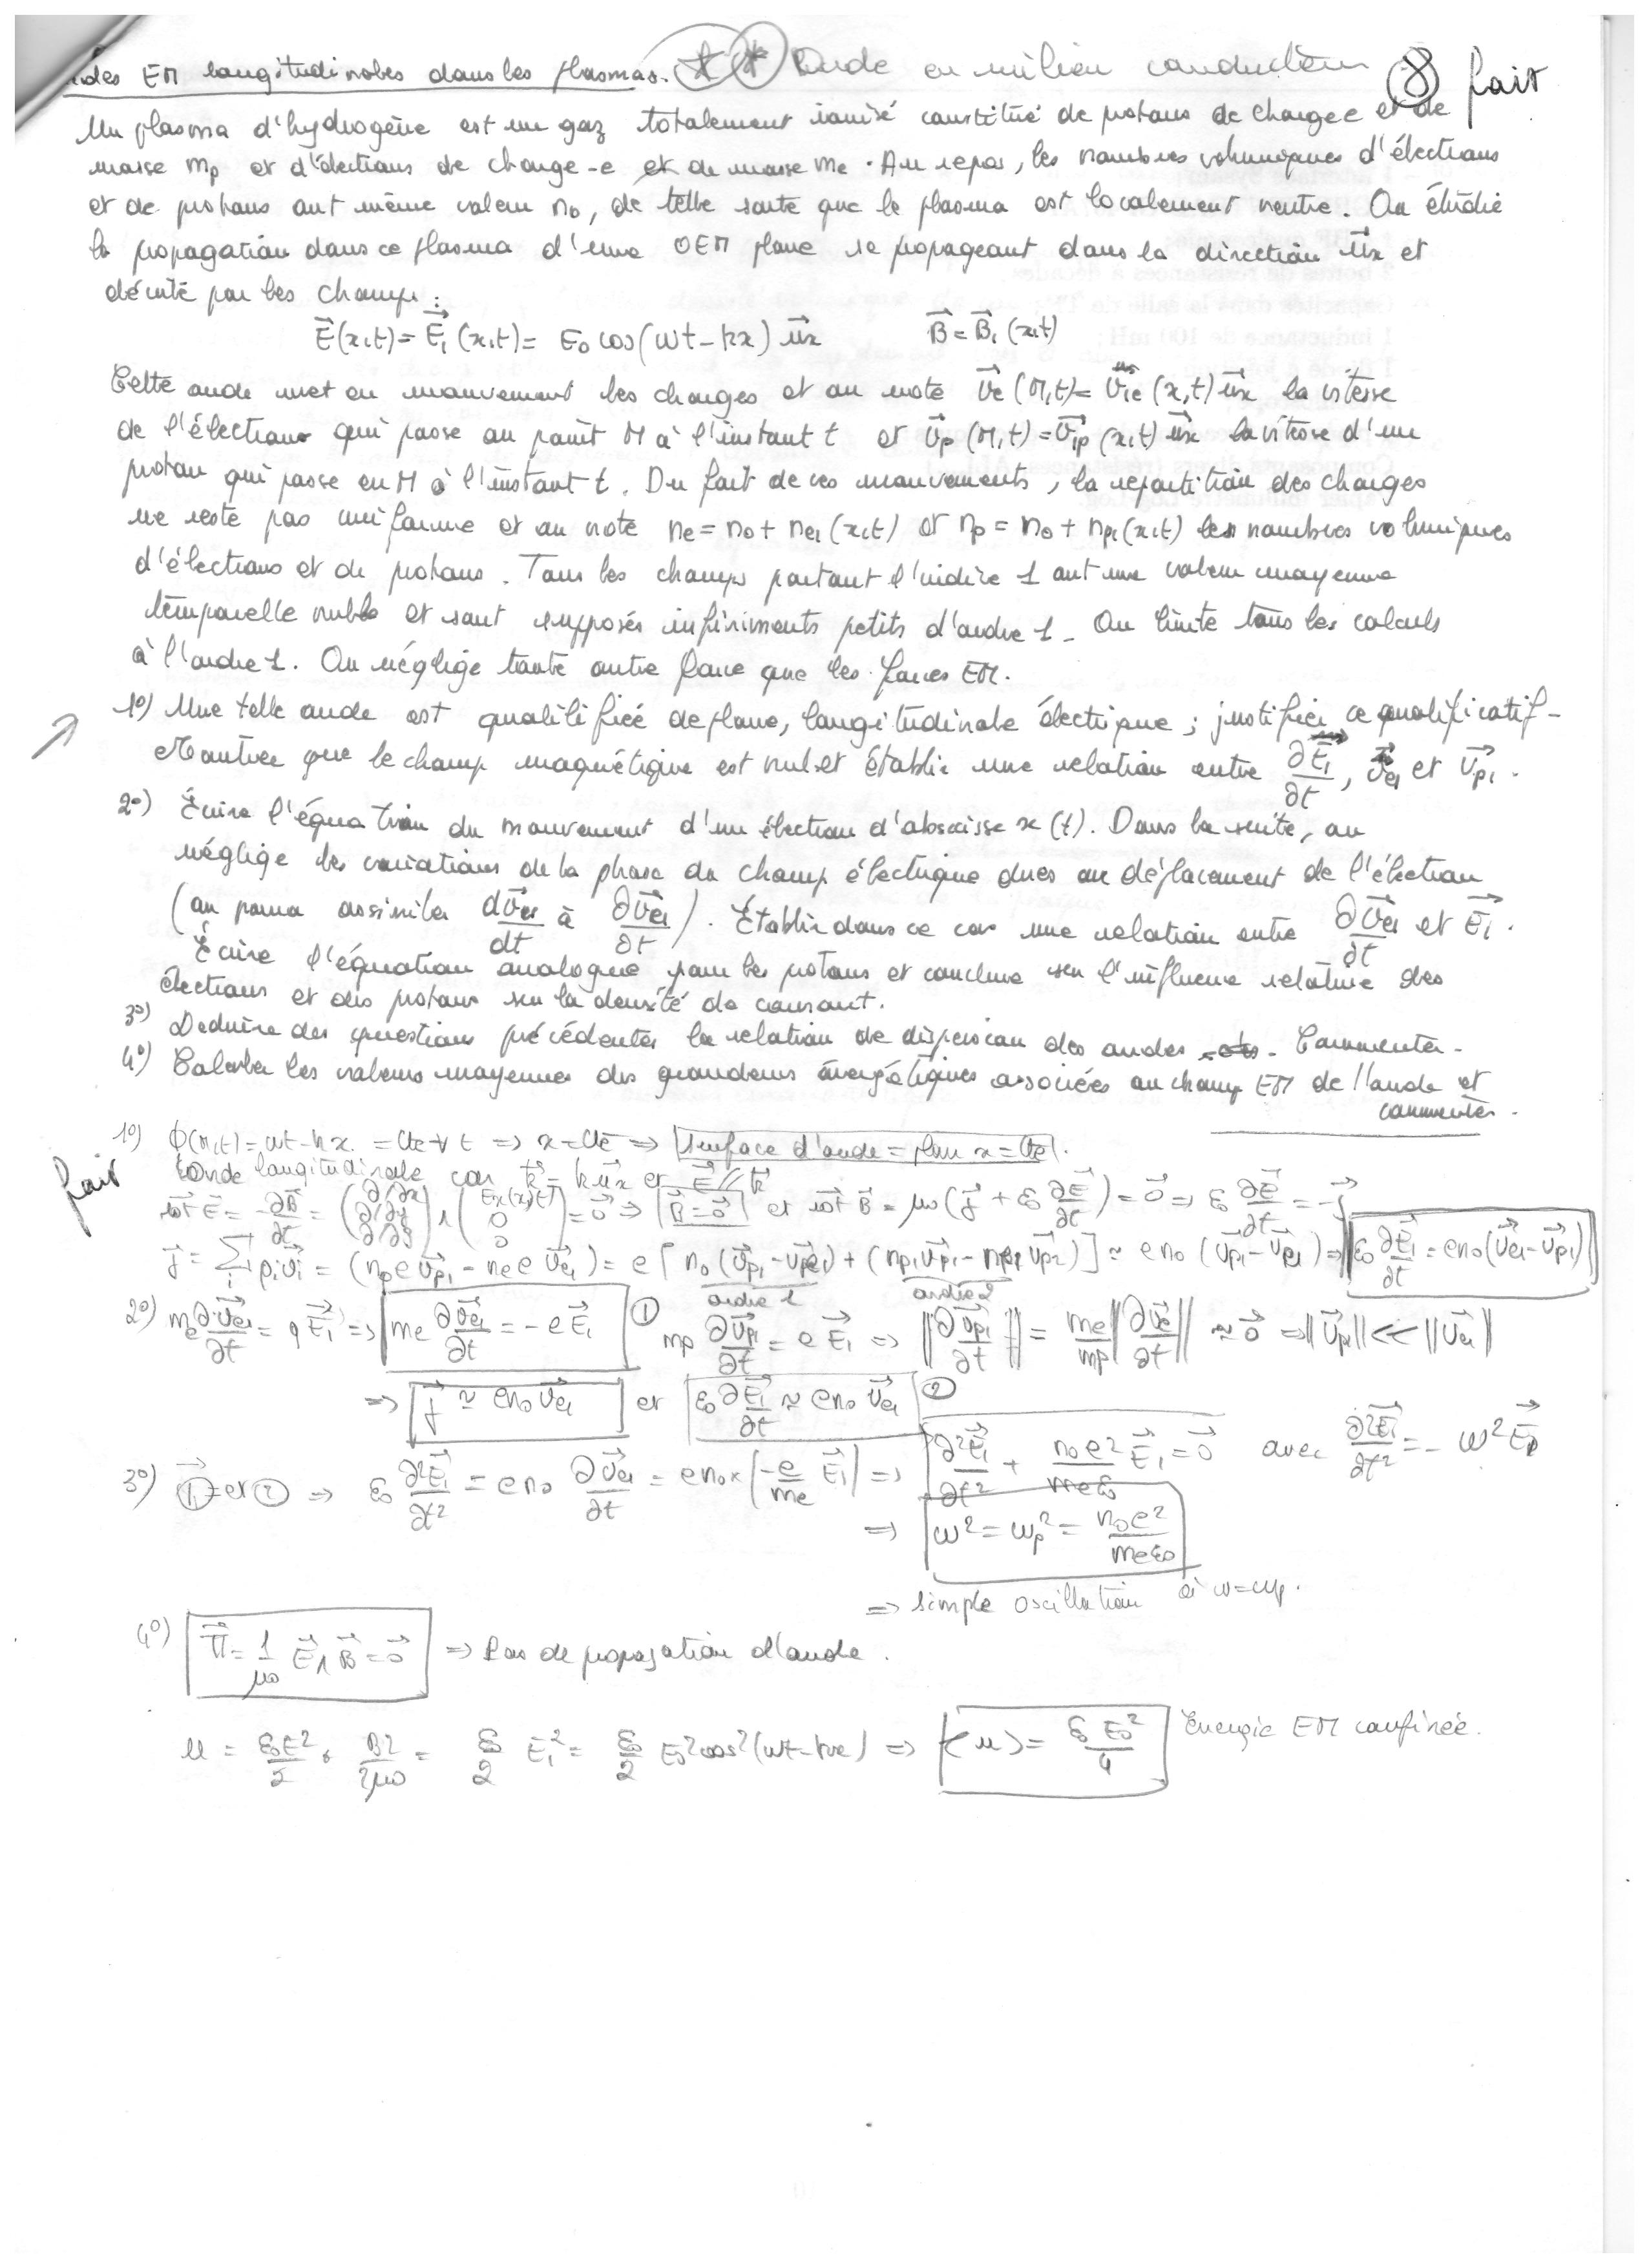 ndes EM longitudinales dans les plasmas. ** Onde en milieu conducteur 8 fait
Un plasma d'hydrogène est un gaz totalement ionisé constitué de protons de charge e et de
masse mp et d'électrons de charge -e et de masse me. Au repos, les nombres volumiques d'électrons
et de protons ont même valeur n0, de telle sorte que le plasma est localement neutre. On étudie
la propagation dans ce plasma d'une OEM plane se propageant dans la direction u⃗x et
décrite par les champs :
E⃗(x,t) = E⃗1(x,t) = E0 cos(ωt-kx) u⃗x B⃗ = B⃗1(x,t)
Cette onde met en mouvement les charges et on note v⃗e(M,t) = v1e(x,t) u⃗x la vitesse
de l'électron qui passe au point M à l'instant t et v⃗p(M,t) = v⃗1p(x,t) u⃗x la vitesse d'un
proton qui passe en M à l'instant t. Du fait de ces mouvements, la repartition des charges
ne reste pas uniforme et on note ne = n0 + ne1(x,t) et np = n0 + np1(x,t) les nombres volumiques
d'électrons et de protons. Tous les champs portant l'indice 1 ont une valeur moyenne
temporelle nulle et sont supposés infiniments petits d'ordre 1. On limite tous les calculs
à l'ordre 1. On néglige toute autre force que les forces EM.
1°) Une telle onde est qualifiée de plane, longitudinale électrique ; justifier ce qualificatif.
Montrer que le champ magnétique est nul et établir une relation entre ∂E⃗1/∂t, v⃗e1 et v⃗p1.
2°) Écrire l'équation du mouvement d'un électron d'abscisse x(t). Dans la suite, on
néglige les variations de la phase du champ électrique dues au déplacement de l'électron
(on pourra assimiler dv⃗e1/dt à ∂v⃗e1/∂t). Établir dans ce cas une relation entre ∂v⃗e1/∂t et E⃗1.
Écrire l'équation analogue pour les protons et conclure sur l'influence relative des
électrons et des protons sur la densité de courant.
3°) Deduire des questions précédentes la relation de dispersion des ondes. Commenter.
4°) Calculer les valeurs moyennes des grandeurs énergétiques associées au champ EM de l'onde et
commenter.
1°) Φ(M,t) = ωt-kx = cte ∀ t => x = cte => surface d'onde = plan x = cte.
fait Onde longitudinale car k⃗ = k u⃗x et E⃗ // k⃗
rot⃗ E⃗ = -∂B⃗/∂t = (∂/∂x ∂/∂y ∂/∂z) ∧ (Ex(x,t) 0 0) = 0⃗ => B⃗ = 0⃗ et rot⃗ B⃗ = μ0(j⃗ + ε0 ∂E⃗/∂t) = 0⃗ => ε0 ∂E⃗/∂t = -j⃗
j⃗ = Σi ρi v⃗i = (np e v⃗p1 - ne e v⃗e1) = e[n0(v⃗p1 - v⃗e1) + (np1 v⃗p1 - ne1 v⃗p2)] ≃ en0(v⃗p1 - v⃗e1) => ε0 ∂E⃗1/∂t = en0(v⃗e1 - v⃗p1)
ordre 1 ordre 2
2°) me ∂v⃗e1/∂t = qE⃗1 => me ∂v⃗e1/∂t = -eE⃗1 ① mp ∂v⃗p1/∂t = eE⃗1 => ||∂v⃗p1/∂t|| = me/mp ||∂v⃗e/∂t|| ≃ 0⃗ => ||v⃗p1|| << ||v⃗e1||
=> j⃗ ≃ en0 v⃗e1 et ε0 ∂E⃗1/∂t ≃ en0 v⃗e1 ②
3°) ① et ② => ε0 ∂²E⃗1/∂t² = en0 ∂v⃗e1/∂t = en0 × (-e/me E⃗1) => ∂²E⃗1/∂t² + n0e²/meε0 E⃗1 = 0⃗ avec ∂²E⃗1/∂t² = -ω²E⃗1
=> ω² = ωp² = n0e²/meε0
=> simple oscillation à ω = ωp.
4°) Π⃗ = 1/μ0 E⃗ ∧ B⃗ = 0⃗ => Pas de propagation d'onde.
u = ε0E²/2 + B²/2μ0 = ε0/2 E1² = ε0/2 E0² cos²(ωt-kx) => <u> = ε0E0²/4 Energie EM confinée.